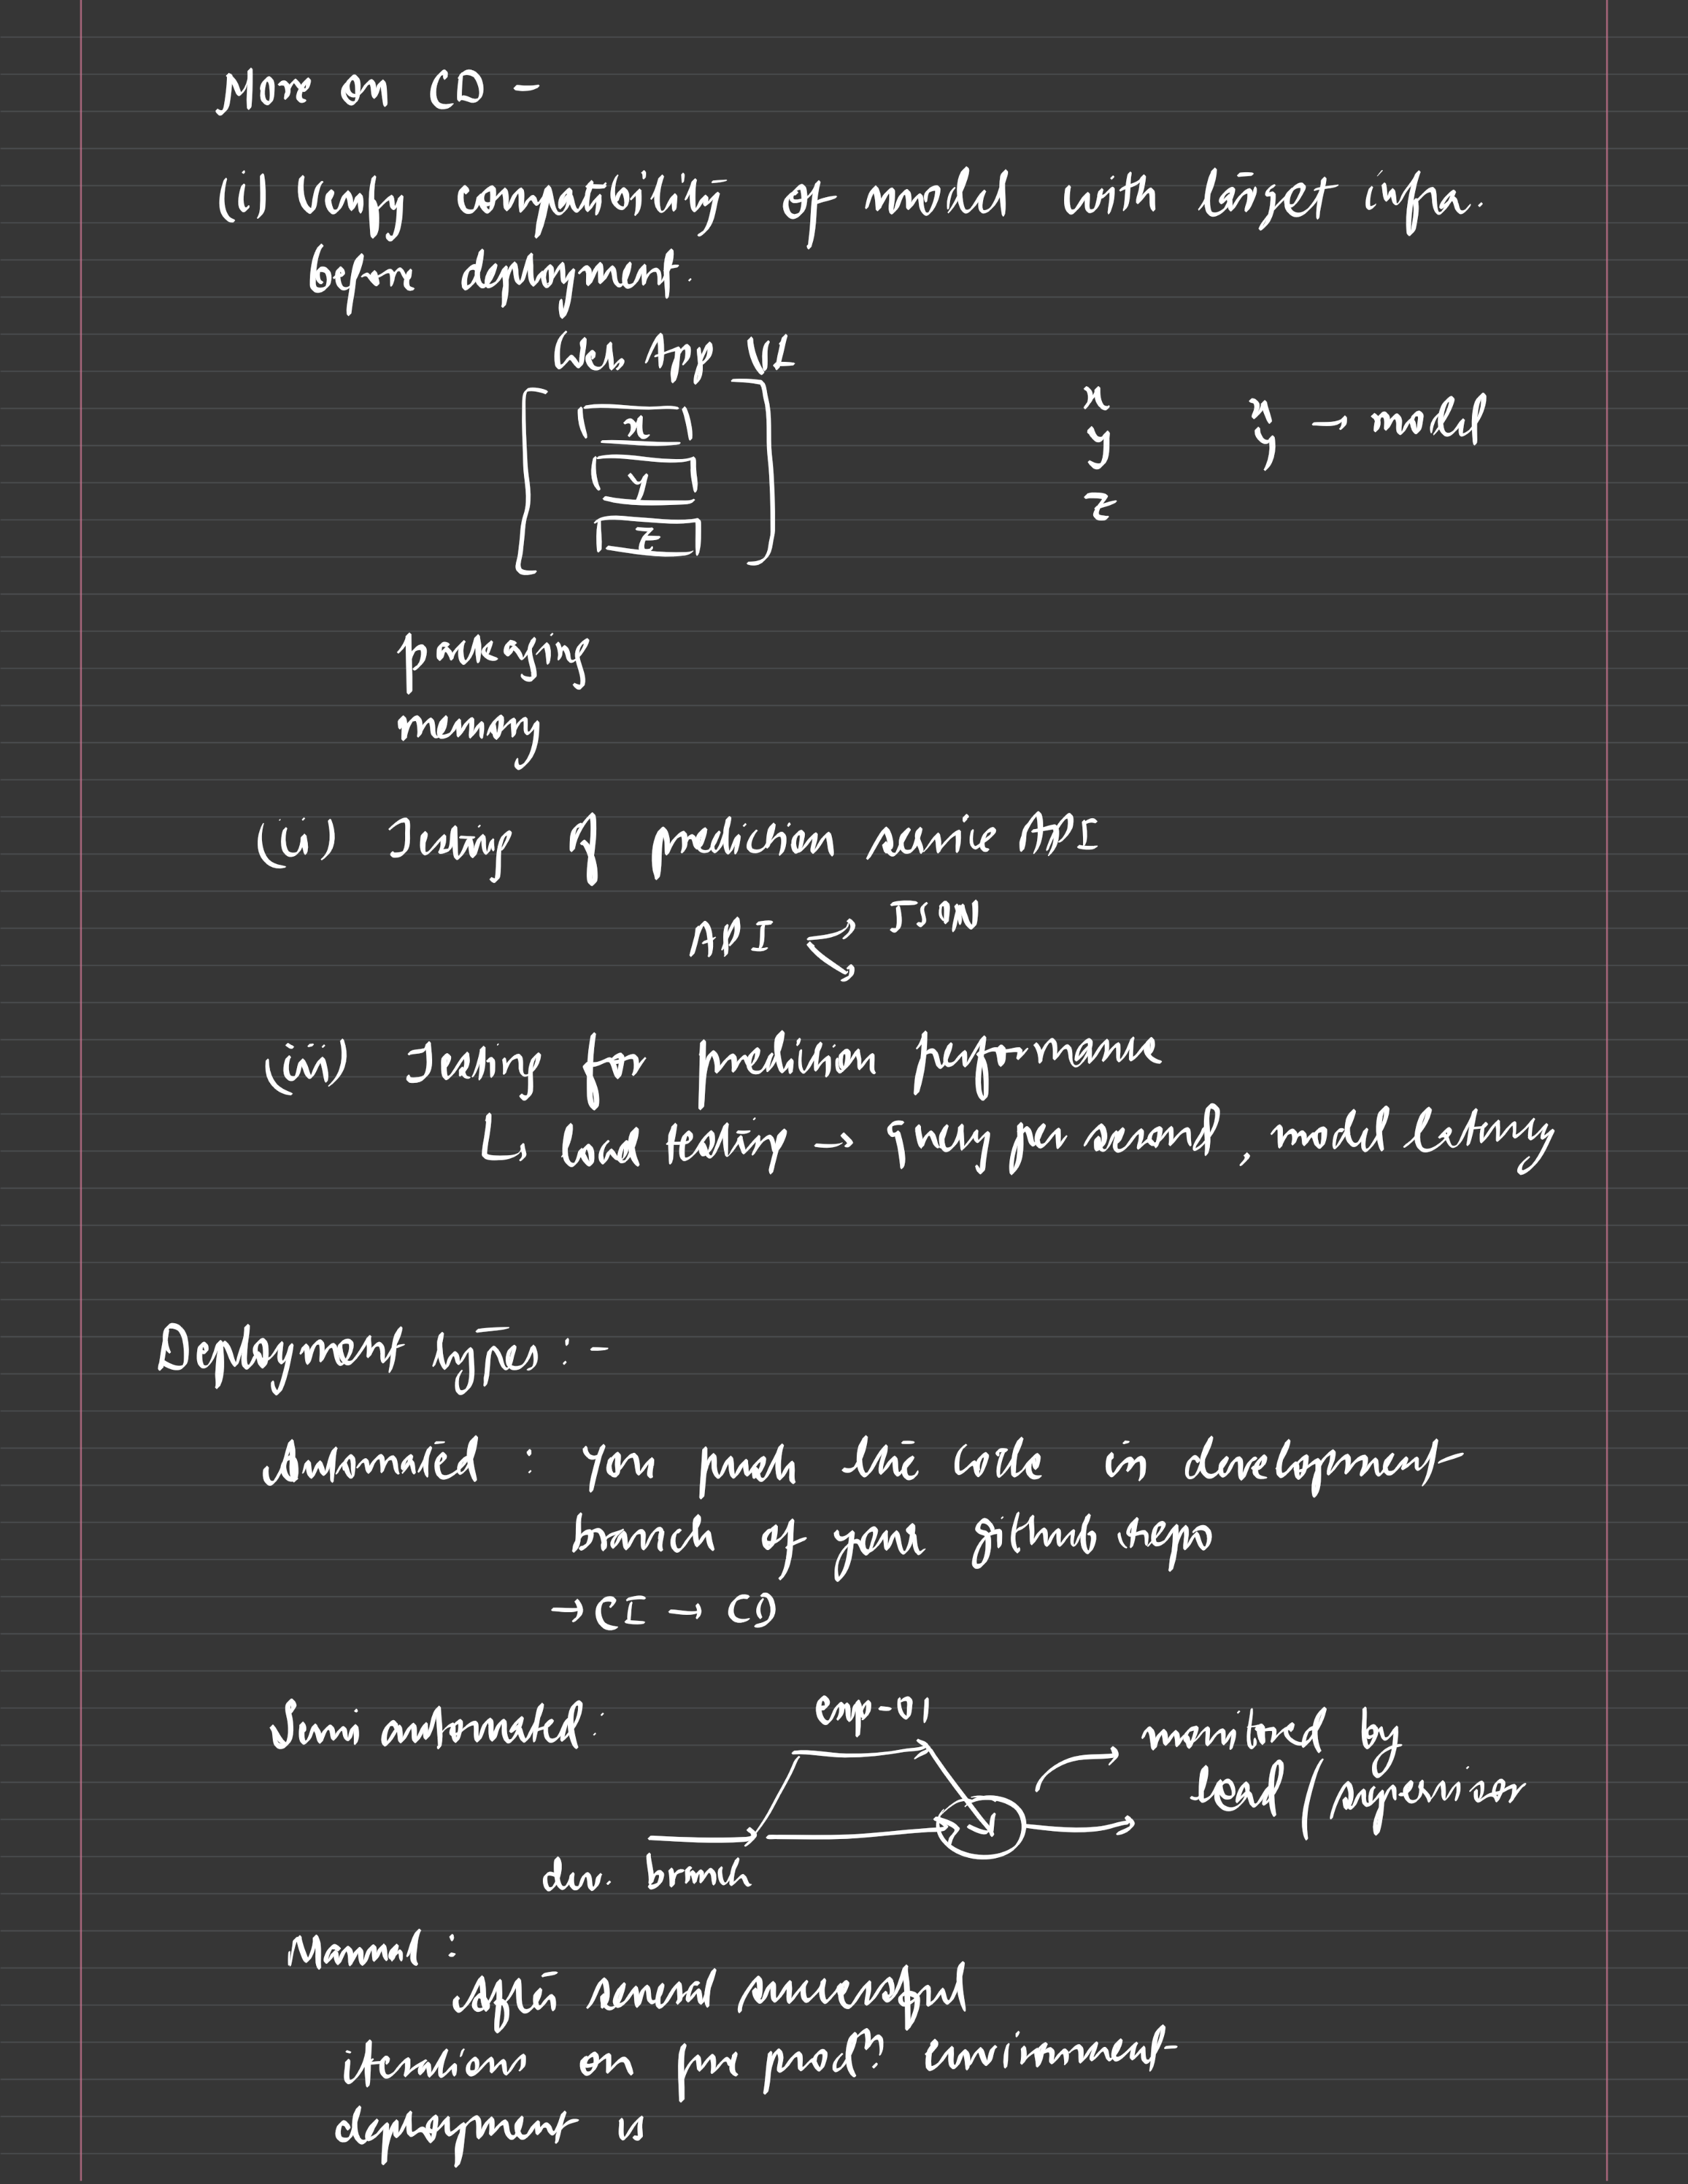 More on CD -
(i) Verify compatibility of model with target infra.
before deployment.
App V1
x
y
z
x
y
z
x
y → model
packaging
memory
(ii) Testing of prediction service API
API JSON
(iii) Testing for prediction performance
↳ load testing → query per second, model latency
Deployment types :-
Automated : You push the code in development
branch of your github repo
→ CI → CD
Semi automated :
exp-01
monitored by
lead / supervisor
dev. branch
Manual :
after several successful
iterations on pre prodn. environment
deployment is